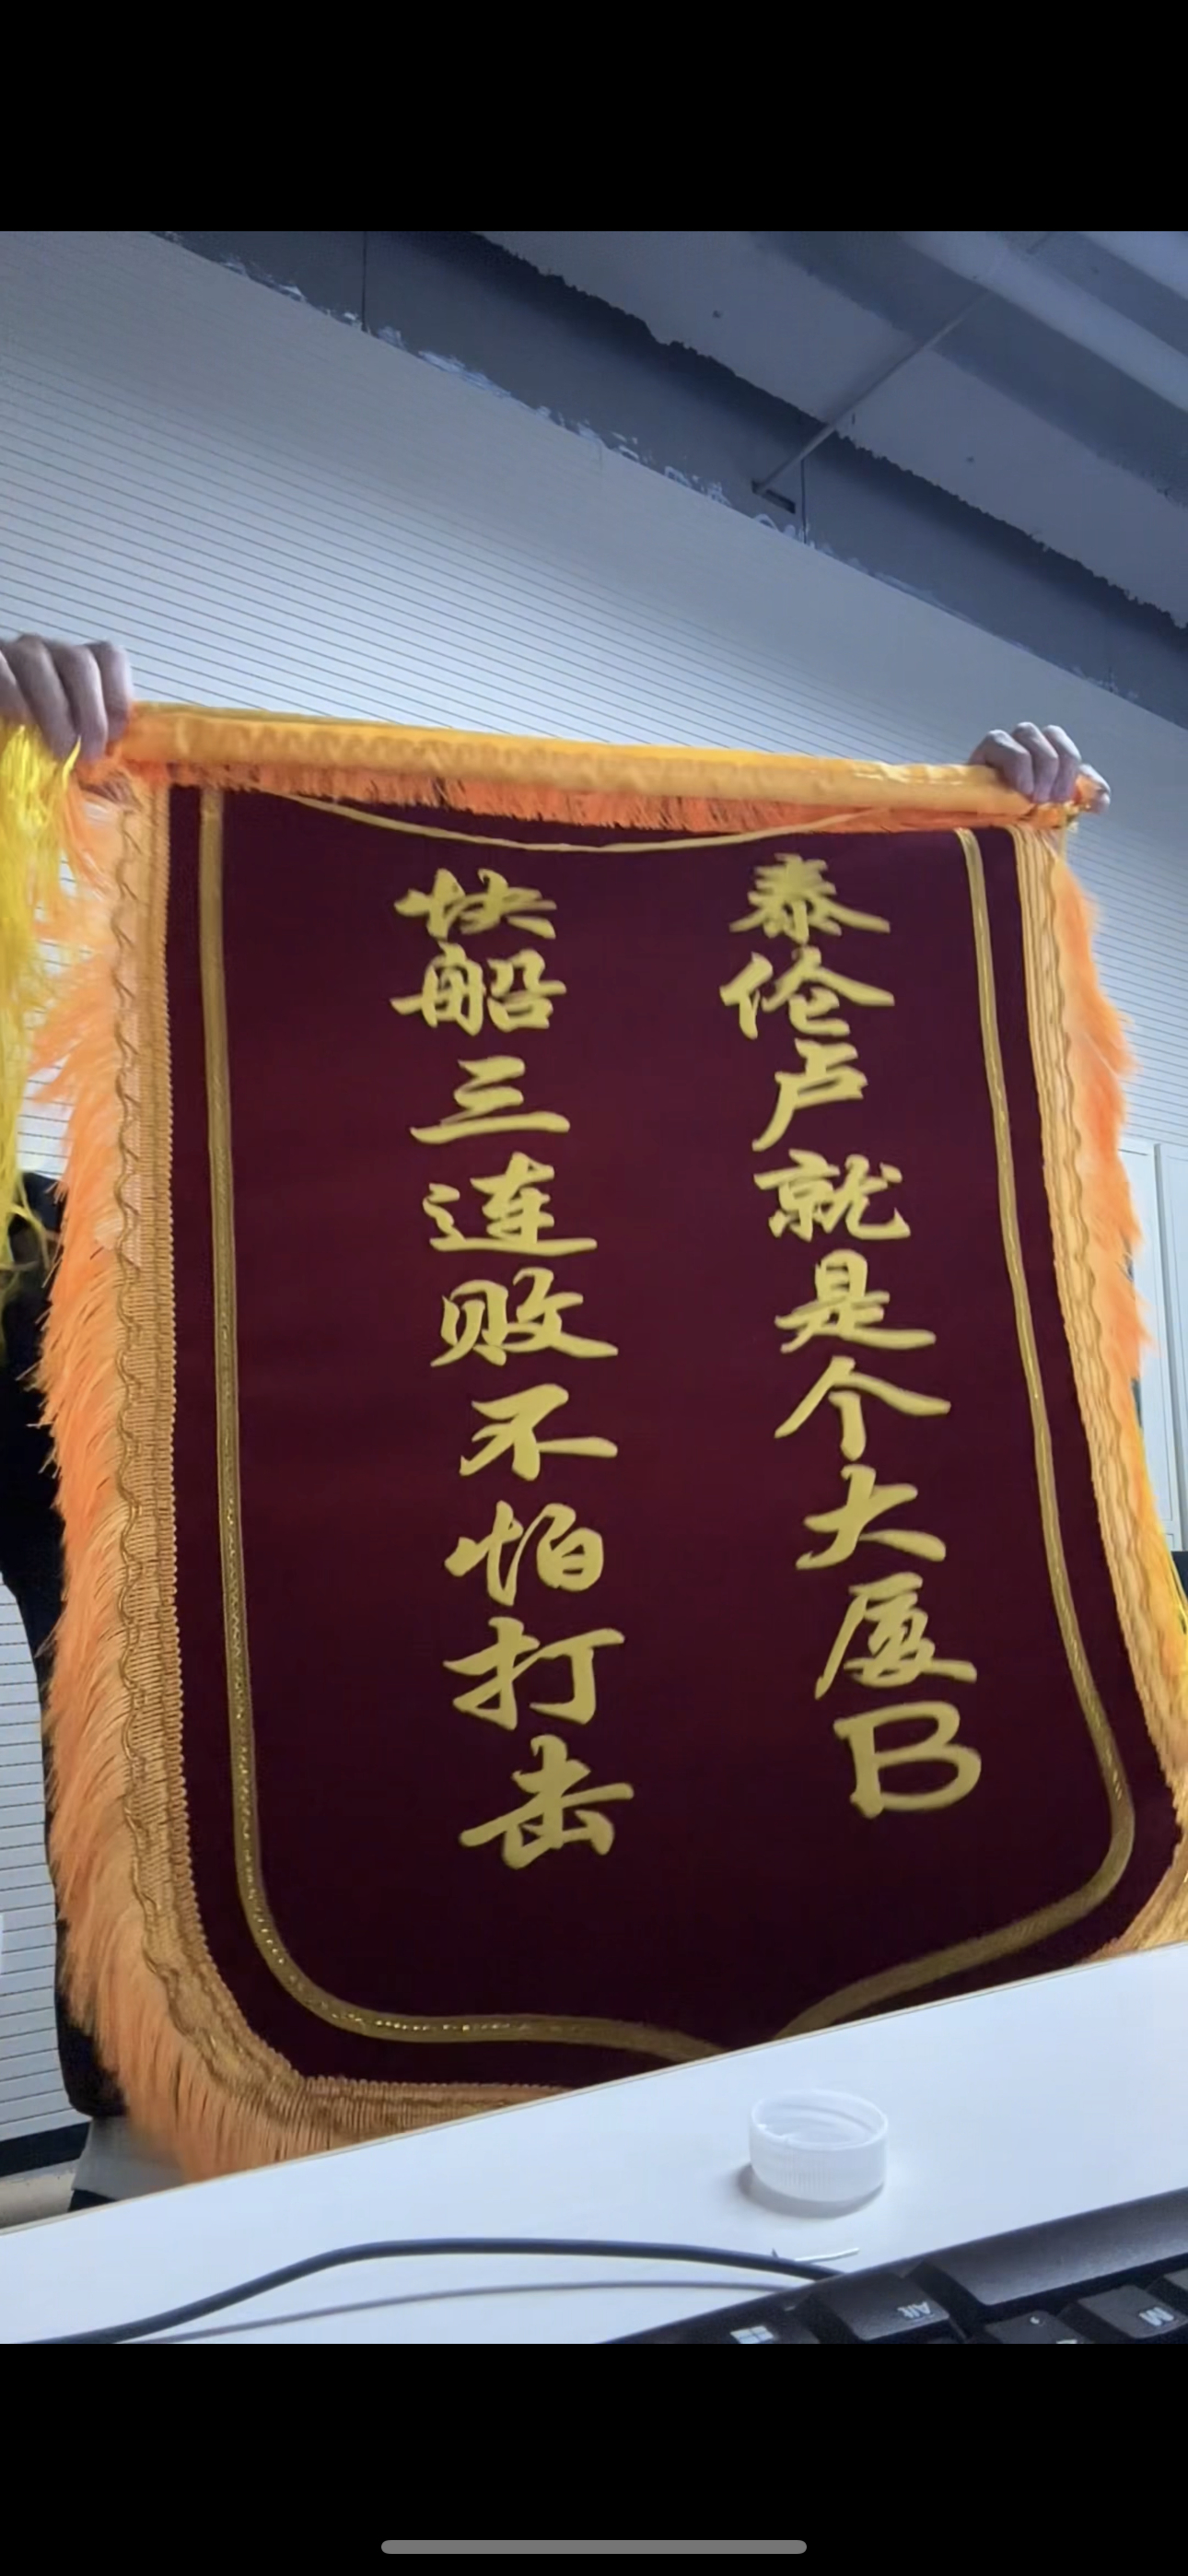 泰伦卢就是个大厦B
快船三连败不怕打击
Alt
M